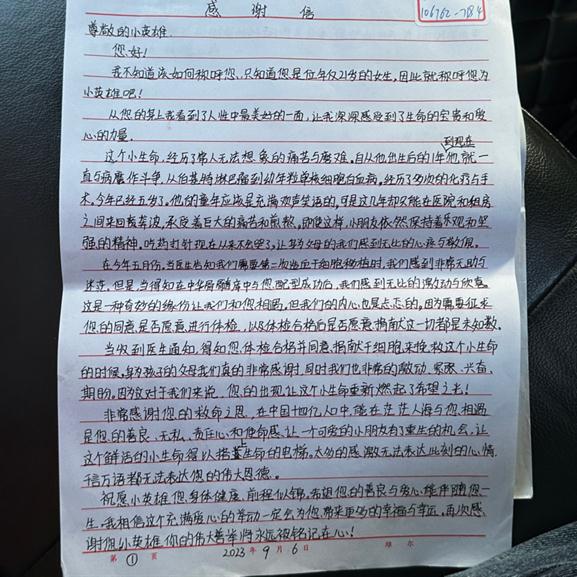 感谢信
106762-7184
尊敬的小英雄
您好!
我不知道该如何称呼您,只知道您是位年仅21岁的女生,因此就称呼您为
小英雄吧!
从您的身上我看到了人性中最美好的一面,让我深深感受到了生命的宝贵和爱
心的力量.
到现在
这个小生命,经历了常人无法想象的痛苦与磨难,自从他出生后的1年他,就一
直与病魔作斗争,从伯基特淋巴瘤到幼年粒单核细胞白血病,经历了多次的化疗与手
术,今年已经五岁了,他的童年应该是充满欢声笑语的,可是这几年却只能在医院和租房
之间来回奔波,承受着巨大的痛苦和煎熬,即使这样,小朋友依然保持着乐观和坚
强的精神,吃药打针现在从来不会哭了,让身为父母的我们感到无比的心疼与敬佩.
在今年五月份,当医生告知我们需要第二次造血干细胞移植时,我们感到非常无助与
迷茫,但是,当得知在中华骨髓库中与您配型成功后,我们感到无比的激动与欣喜
这是一种奇妙的缘份让我们和您相遇,但我们的内心也是忐忑的,因为需要征求
您的同意,是否愿意进行体检,以及体检合格后是否愿意捐献这一切都是未知数.
当收到医生通知,得知您体检合格并同意捐献干细胞来挽救这个小生命
的时候,身为孩子的父母我们真的非常感谢!同时我们也非常的激动、紧张、兴奋、
期盼,因为这对于我们来说,您的出现让这个小生命重新燃起了希望之光!
非常感谢您的救命之恩,在中国十四亿人口中,能在茫茫人海与您相遇
是您的善良、无私、责任心和使命感,让一个可爱的小朋友有了重生的机会,让
这个鲜活的小生命得以搭上生命的电梯.太多的感激无法表达此刻的心情,
千言万语都无法表达您的伟大恩德.
祝愿小英雄您身体健康,前程似锦,希望您的善良与爱心,能伴随您一
生,我相信这个充满爱心的举动一定会为您带来更多的幸福与幸运,再次感
谢您,小英雄你的伟大善举将永远被铭记在心!
第 ① 页 2023 年 9 月 6 日